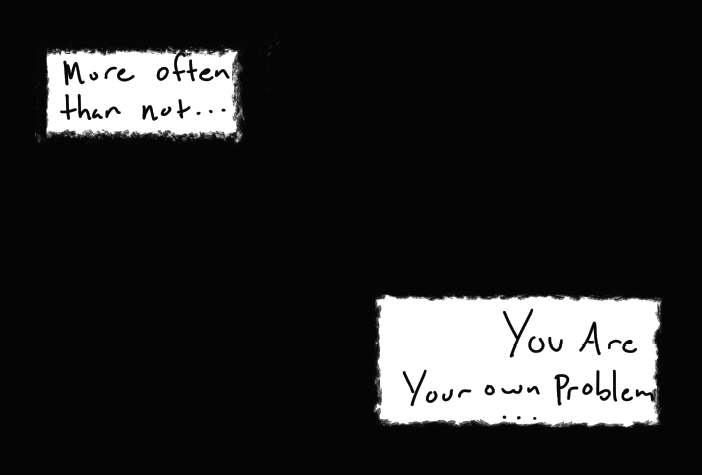 More often
than not...
You Are
Your own Problem
...